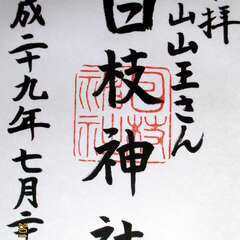 拝
山山王さん
日枝神社
成二十九年七月二
日枝神社